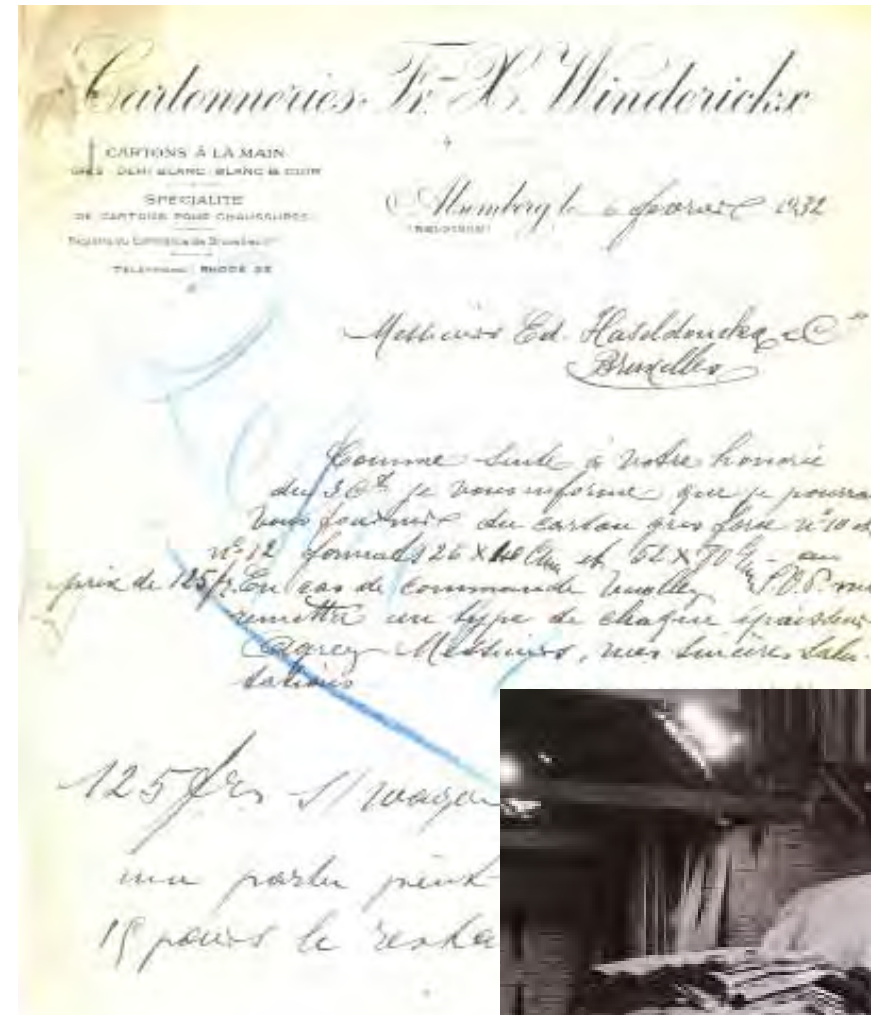 Cartonneries Fr. X. Winderickx
CARTONS À LA MAIN
GRIS - DEMI BLANC - BLANC & CUIR
SPÉCIALITÉ
DE CARTONS POUR CHAUSSURES
Registre du Commerce de Bruxelles
TÉLÉPHONE: RHODE 25
Alsemberg, le 6 fevrier 1932
(BELGIQUE)
Messieurs Ed. Haseldonckx & Cie
Bruxelles
Comme suite à votre honorée
du 3 Ct. je vous informe que je pourrai
vous fournir du carton gris force n° 10 ou
n° 12 formats 26 X et 52 X 70 au
prix de 125 fr. En cas de commande veuillez S.V.P. me
remettre un type de chaque épaisseur
Agréez Messieurs, mes sincères salu-
tations
125 frs s/ wagon
une partie
15 jours le reste